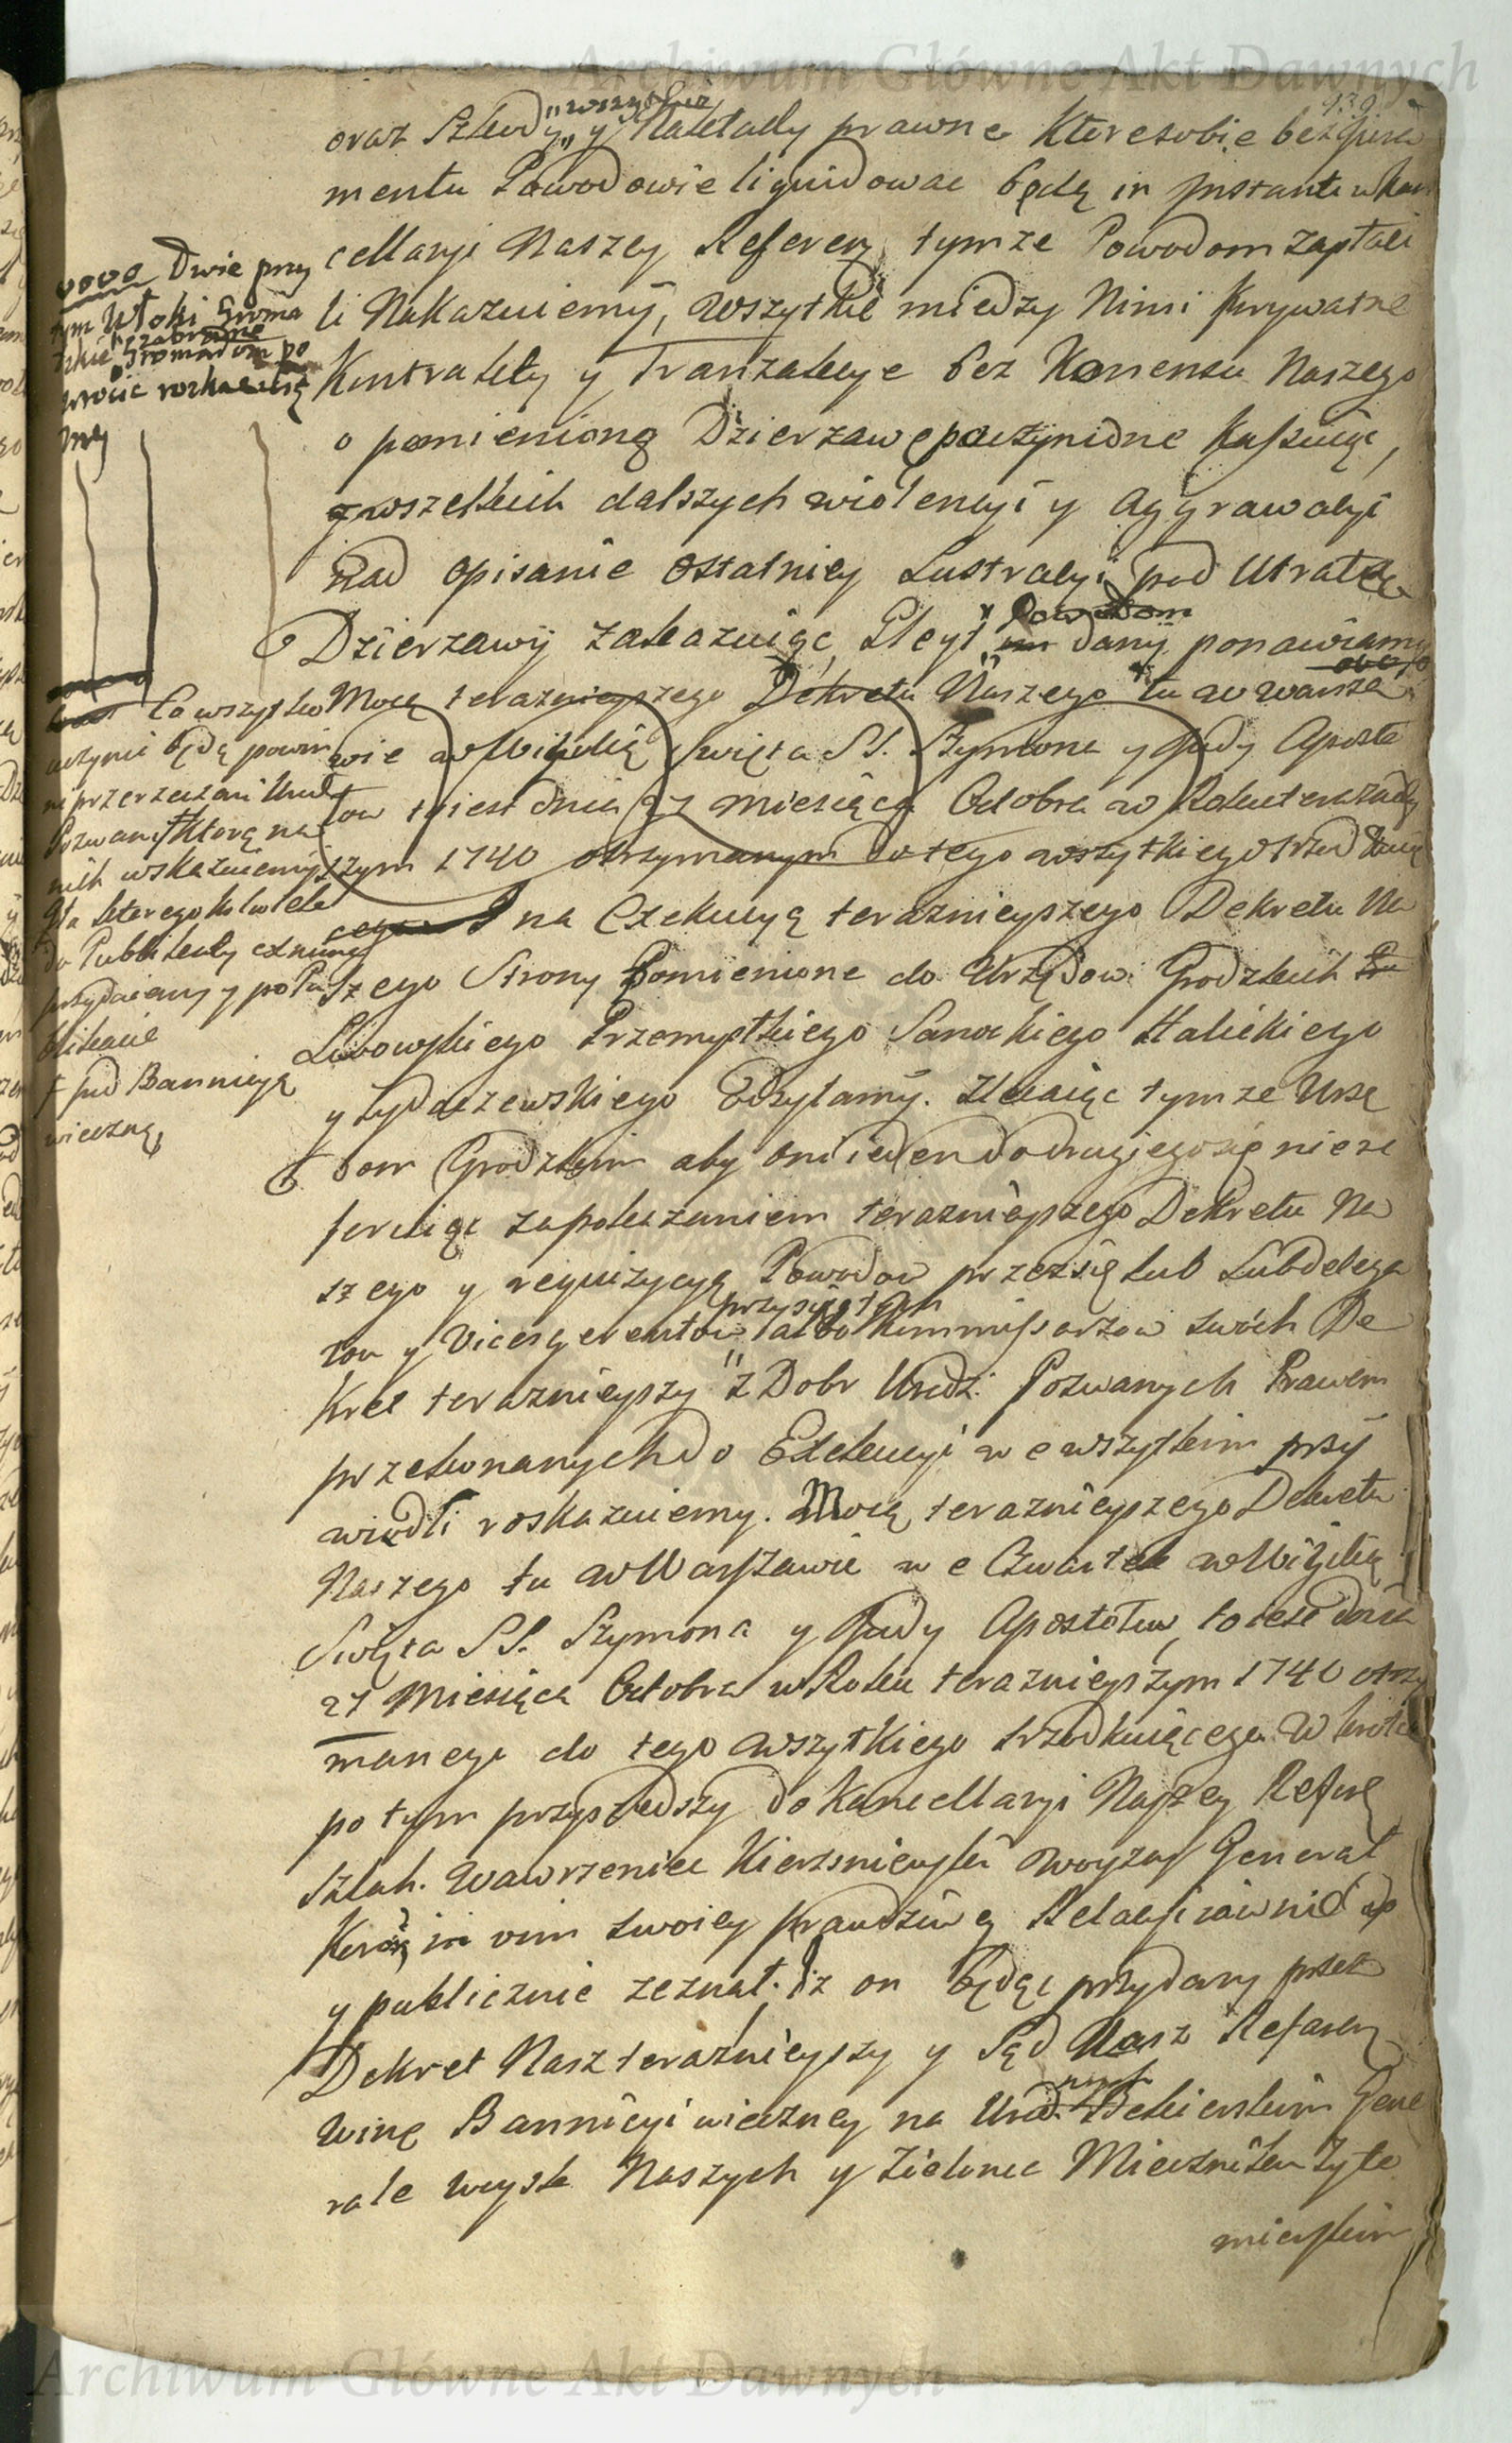 Archiwum Główne Akt Dawnych
939
wszytkie
oraz Szkody y Naklady prawne Ktore sobie bez Jura
mentu Powodowie liquidowac będą in Instanti w Kan
cellaryi Naszey Referen. tymze Powodom zapłaci
li Nakazuiemy, wszytkie między Nimi prywatne
Kontrakty y Tranzakcye bez Konsensu Naszego
o pomienioną Dzierzawę poczynione Kassuiąc,
y wszelkich dalszych wiolencyi y Aggrawacyi
nad opisanie ostatniey Lustracyi pod Utratą
Powodom
Dzierzawy zakazuiąc, Gleyt im dany ponawiamy
Mocą teraznieyszego Dekretu Naszego tu w Warsza
wie w Wigilią Swięta SS. Szymona y Judy Aposto
łow to iest dnia 27 miesiąca Octobra w Roku terazniey
szym 1740 otrzymanym do tego wszytkiego srzodkuią
cego I na Exekucyą teraznieyszego Dekretu Na
szego Strony Pomienione do Urzędow Grodzkich
Lwowskiego Przemyskiego Sanockiego Halickiego
y Zydaczewskiego Odsyłamy. Zlecaiąc tymze Urzę
dom Grodzkim aby oni ieden do drugiego się nie re
feruiąc za pokazaniem teraznieyszego Dekretu Na
szego y requizycyą Powodow przez się lub Subdelega
przysięgłych
tow y Vicesgerentow albo Kommissarzow swoich De
kret teraznieyszy z Dobr Urodz. Pozwanych Prawem
przekonanych do Exekucyi we wszytkim przy
wiedli roskazuiemy. Mocą teraznieyszego Dekretu
Naszego tu w Warszawie we Czwartek w Wigilią
Swięta SS. Szymona y Judy Apostołow, to iest dnia
27 Miesiąca Octobra w Roku teraznieyszym 1740 otrzy
manego do tego wszytkiego srzodkuiącego. W krotce
potym przyszedszy do Kancellaryi Naszey Referen
Szlach. Wawrzeniec Woyzny Generał
Koronny in vim swoiey prawdziwey Relacyi iawnie
y publicznie zeznał, iz on będąc przydany przez
Dekret Nasz teraznieyszy y Sąd Nasz Referen.
Winę Bannicyi wieczney na Urod. Bekierskim Gene
rale Woysk Naszych y Zielonce Mieczniku Zyto
mirskim
Dwie przy
tym Włoki Groma
dzkie zabrane
Gromadom po
wrocic roskazuie
my
Co wszytko
uczynic będą powin
ni przerzeczeni Urodz
Pozwani Ktorą na
nich wskazuiemy
Dla ktorego
do Publikaty
przydaiemy y
blikacie
† pod Bannicyą
wieczną
Archiwum Główne Akt Dawnych